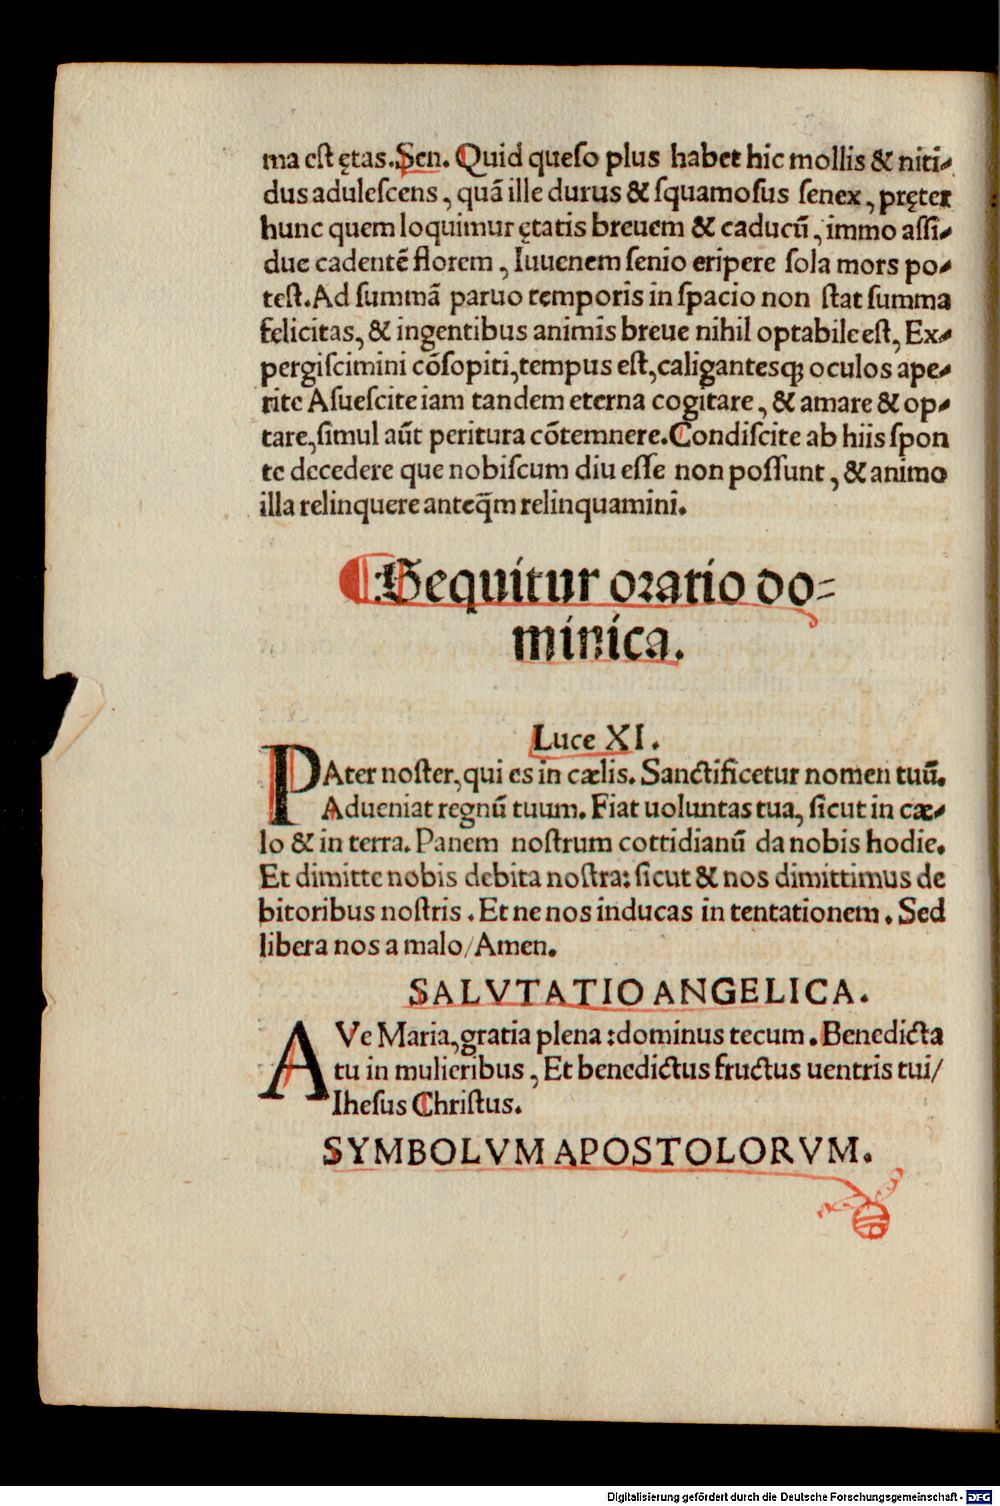 ma eſt ętas.Sen. Quid queſo plus habet hic mollis & niti⸗
dus aduleſcens, quā ille durus & ſquamoſus ſenex, pręter
hunc quem loquimur ętatis breuem & caducū, immo aſſi⸗
due cadentē florem, Iuuenem ſenio eripere ſola mors po⸗
teſt. Ad ſummā paruo temporis in ſpacio non ſtat ſumma
felicitas, & ingentibus animis breue nihil optabile eſt, Ex⸗
pergiſcimini cōſopiti, tempus eſt, caligantesqꝫ oculos ape⸗
rite Aſueſcite iam tandem eterna cogitare, & amare & op⸗
tare, ſimul aūt peritura cōtemnere. Condiſcite ab hiis ſpon
te decedere que nobiſcum diu eſſe non poſſunt, & animo
illa relinquere anteq̄m relinquamini.
Sequitur oratio do⸗
minica.
Luce XI.
PAter noſter, qui es in cælis. Sanctificetur nomen tuū.
Adueniat regnū tuum. Fiat uoluntas tua, ſicut in cæ⸗
lo & in terra. Panem noſtrum cottidianū da nobis hodie.
Et dimitte nobis debita noſtra: ſicut & nos dimittimus de
bitoribus noſtris. Et ne nos inducas in tentationem. Sed
libera nos a malo/Amen.
SALVTATIO ANGELICA.
AVe Maria, gratia plena: dominus tecum. Benedicta
tu in mulieribus, Et benedictus fructus uentris tui/
Iheſus Chriſtus.
SYMBOLVM APOSTOLORVM.
Digitalisierung gefördert durch die Deutsche Forschungsgemeinschaft - DFG